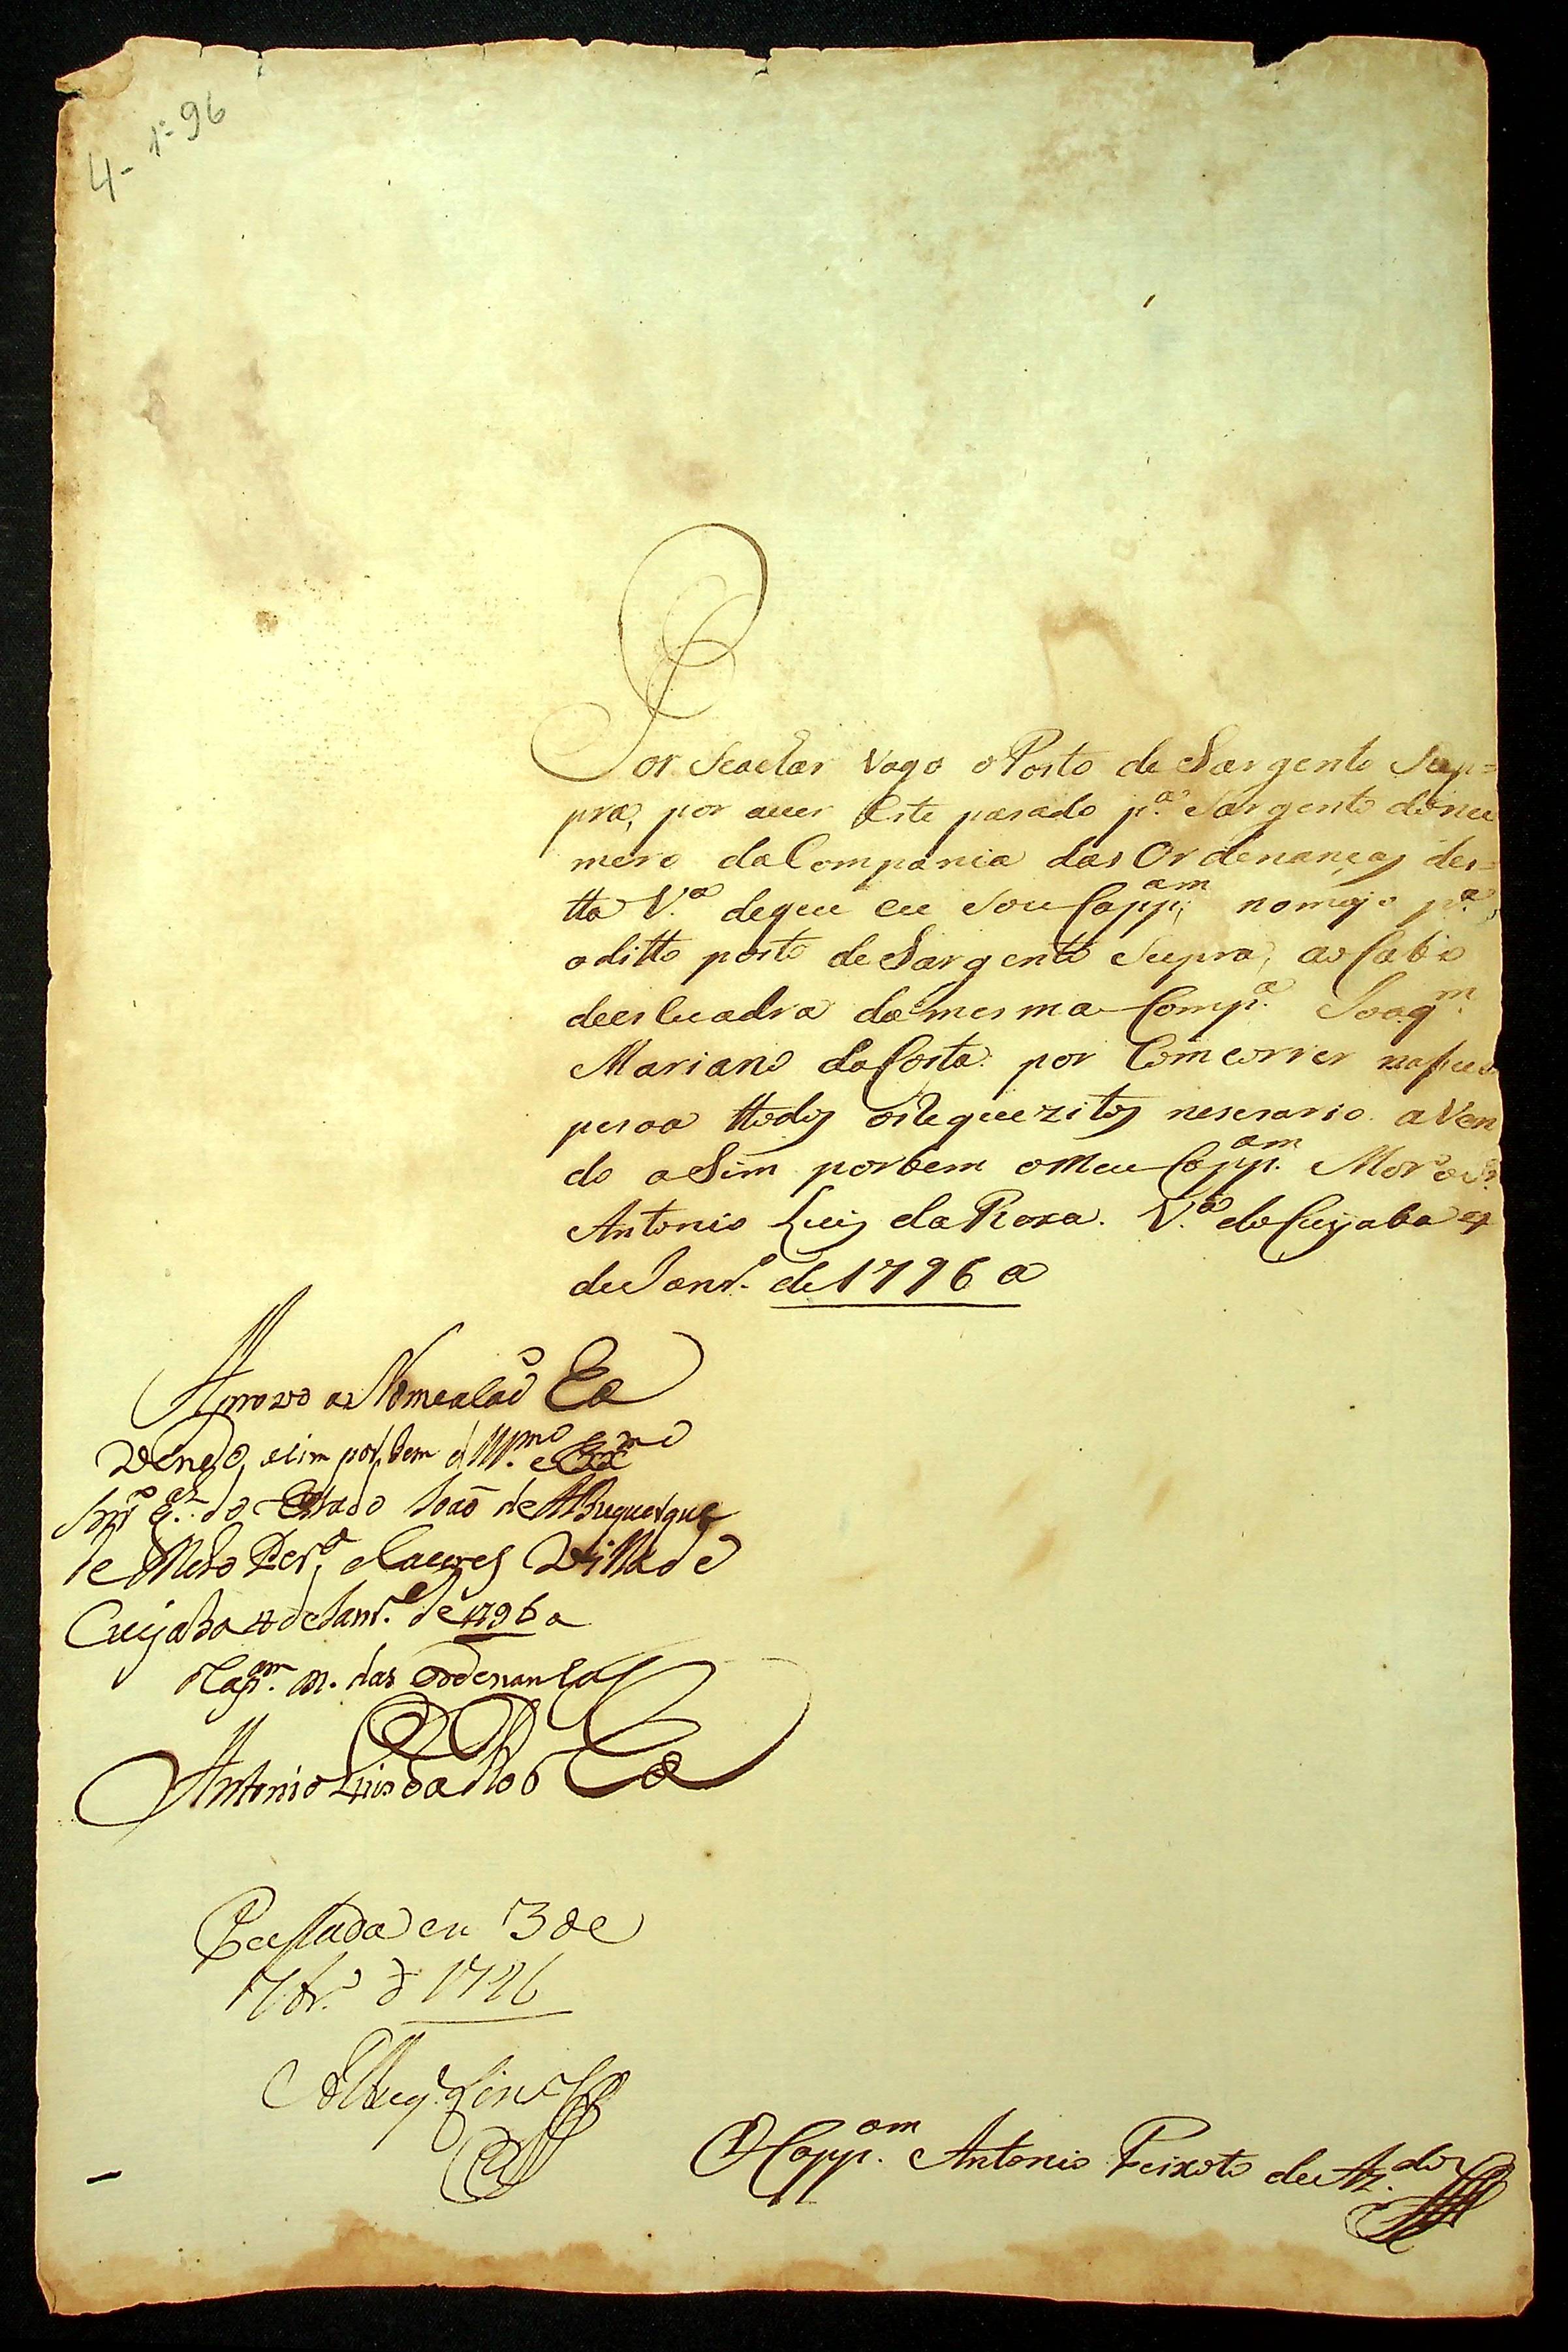 4- 1º 96
Por Seaclar Vago o Posto de Sargento Sup=
pra, por auer este pasado p.ª Sargento donu
mero da Compania das Ordenanças des=
tta V.ª deque eu sou Capp.am nomeyo p.ª
o ditto posto de Sargento Supra, ao Cabo
deescuadra da mesma Comp.ª Joaq.m
Mariano da Costa por Comcorrer nasua
pesoa ttodos os Requezitos neserario aVen
do asim porbem o Meu Capp.am Mor o Sr.
Antonio Luis da Roxa. V.ª do Cuyaba 4
de Janr.º de 1796 a
Aprovo a Nomeasaõ
Vendo asim por bem o Ill.mo e Ex.mo
Snr. G.al do Estado Joaõ de Albuquerque
de Melo Per.ª e Caceres Villa de
Cuyaba 4 de Janr.º de 1796 a
O Cap.am M. das Ordenansas
Antonio Luis da Rocha
Pasada en 3 de
7br.º d 1796
O Capp.am Antonio Peixoto de Az.do